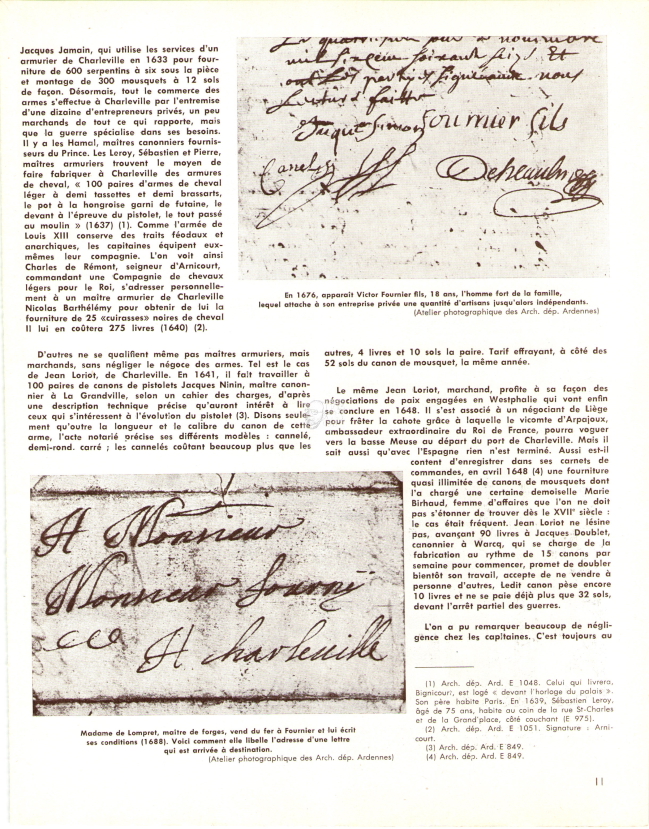 Jacques Jamain, qui utilise les services d'un
armurier de Charleville en 1633 pour four-
niture de 600 serpentins à six sous la pièce
et montage de 300 mousquets à 12 sols
de façon. Désormais, tout le commerce des
armes s'effectue à Charleville par l'entremise
d'une dizaine d'entrepreneurs privés, un peu
marchands de tout ce qui rapporte, mais
que la guerre spécialise dans ses besoins.
Il y a les Hamal, maîtres canonniers fournis-
seurs du Prince. Les Leroy, Sébastien et Pierre,
maîtres armuriers trouvent le moyen de
faire fabriquer à Charleville des armures
de cheval, « 100 paires d'armes de cheval
léger à demi tassettes et demi brassarts,
le pot à la hongroise garni de futaine, le
devant à l'épreuve du pistolet, le tout passé
au moulin » (1637) (1). Comme l'armée de
Louis XIII conserve des traits féodaux et
anarchiques, les capitaines équipent eux-
mêmes leur compagnie. L'on voit ainsi
Charles de Rémont, seigneur d'Arnicourt,
commandant une Compagnie de chevaux
légers pour le Roi, s'adresser personnelle-
ment à un maître armurier de Charleville
Nicolas Barthélémy pour obtenir de lui la
fourniture de 25 «cuirasses» noires de cheval
Il lui en coûtera 275 livres (1640) (2).
mil six cent soixante seize Et
nous
Jaque Simon fournier fils
En 1676, apparaît Victor Fournier fils, 18 ans, l'homme fort de la famille,
lequel attache à son entreprise privée une quantité d'artisans jusqu'alors indépendants.
(Atelier photographique des Arch. dép. Ardennes)
D'autres ne se qualifient même pas maîtres armuriers, mais
marchands, sans négliger le négoce des armes. Tel est le cas
de Jean Loriot, de Charleville. En 1641, il fait travailler à
100 paires de canons de pistolets Jacques Ninin, maître canon-
nier à La Grandville, selon un cahier des charges, d'après
une description technique précise qu'auront intérêt à lire
ceux qui s'intéressent à l'évolution du pistolet (3). Disons seule-
ment qu'outre la longueur et le calibre du canon de cette
arme, l'acte notarié précise ses différents modèles : cannelé,
demi-rond. carré ; les cannelés coûtant beaucoup plus que les
autres, 4 livres et 10 sols la paire. Tarif effrayant, à côté des
52 sols du canon de mousquet, la même année.
Le même Jean Loriot, marchand, profite à sa façon des
négociations de paix engagées en Westphalie qui vont enfin
se conclure en 1648. Il s'est associé à un négociant de Liège
pour frêter la cahote grâce à laquelle le vicomte d'Arpajoux,
ambassadeur extraordinaire du Roi de France, pourra voguer
vers la basse Meuse au départ du port de Charleville. Mais il
sait aussi qu'avec l'Espagne rien n'est terminé. Aussi est-il
content d'enregistrer dans ses carnets de
commandes, en avril 1648 (4) une fourniture
quasi illimitée de canons de mousquets dont
l'a chargé une certaine demoiselle Marie
Birhaud, femme d'affaires que l'on ne doit
pas s'étonner de trouver dès le XVIIe siècle :
le cas était fréquent. Jean Loriot ne lésine
pas, avançant 90 livres à Jacques Doublet,
canonnier à Warcq, qui se charge de la
fabrication au rythme de 15 canons par
semaine pour commencer, promet de doubler
bientôt son travail, accepte de ne vendre à
personne d'autres, Ledit canon pèse encore
10 livres et ne se paie déjà plus que 32 sols,
devant l'arrêt partiel des guerres.
L'on a pu remarquer beaucoup de négli-
gence chez les capitaines. C'est toujours au
A Monsieur
Monsieur
A charleuille
Madame de Lompret, maître de forges, vend du fer à Fournier et lui écrit
ses conditions (1688). Voici comment elle libelle l'adresse d'une lettre
qui est arrivée à destination.
(Atelier photographique des Arch. dép. Ardennes)
(1) Arch. dép. Ard. E 1048. Celui qui livrera,
Bignicourt, est logé « devant l'horloge du palais ».
Son père habite Paris. En 1639, Sébastien Leroy,
âgé de 75 ans, habite au coin de la rue St-Charles
et de la Grand'place, côté couchant (E 975).
(2) Arch. dép. Ard. E 1051. Signature : Arni-
court.
(3) Arch. dép. Ard. E 849.
(4) Arch. dép. Ard. E 849.
11